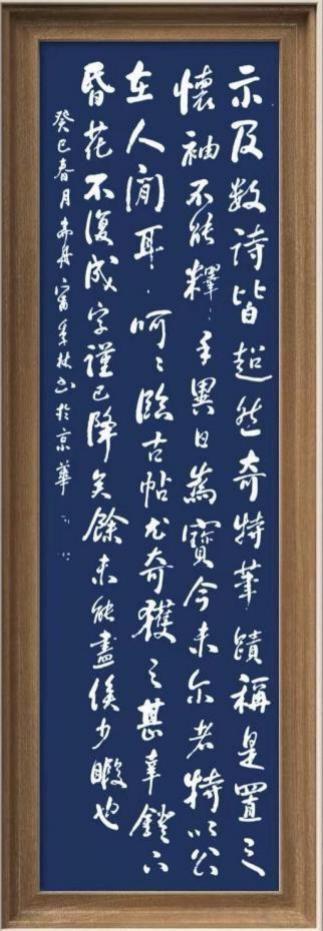 示及数诗皆超然奇特笔蹟稱是置之
懷袖不能釋手異日為寶今未尔者特以公
在人间耳呵呵臨古帖尤奇獲之甚幸鐙下
昏花不復成字謹已降矣餘未能盡俟少暇也
癸巳春月 季林书於京華